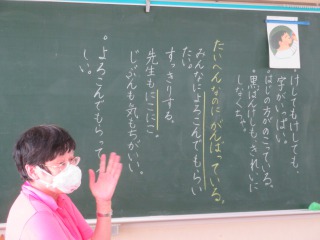 けしてもけしても、
字がいっぱい。
はじの方がのこっている。
黒ばんけしもきれいに
しなくちゃ。
たいへんなのにがんばっている。
みんなによろこんでもらい
たい。
すっきりする。
先生もにこにこ
じぶんも気もちがいい。
よろこんでもらって
しい。